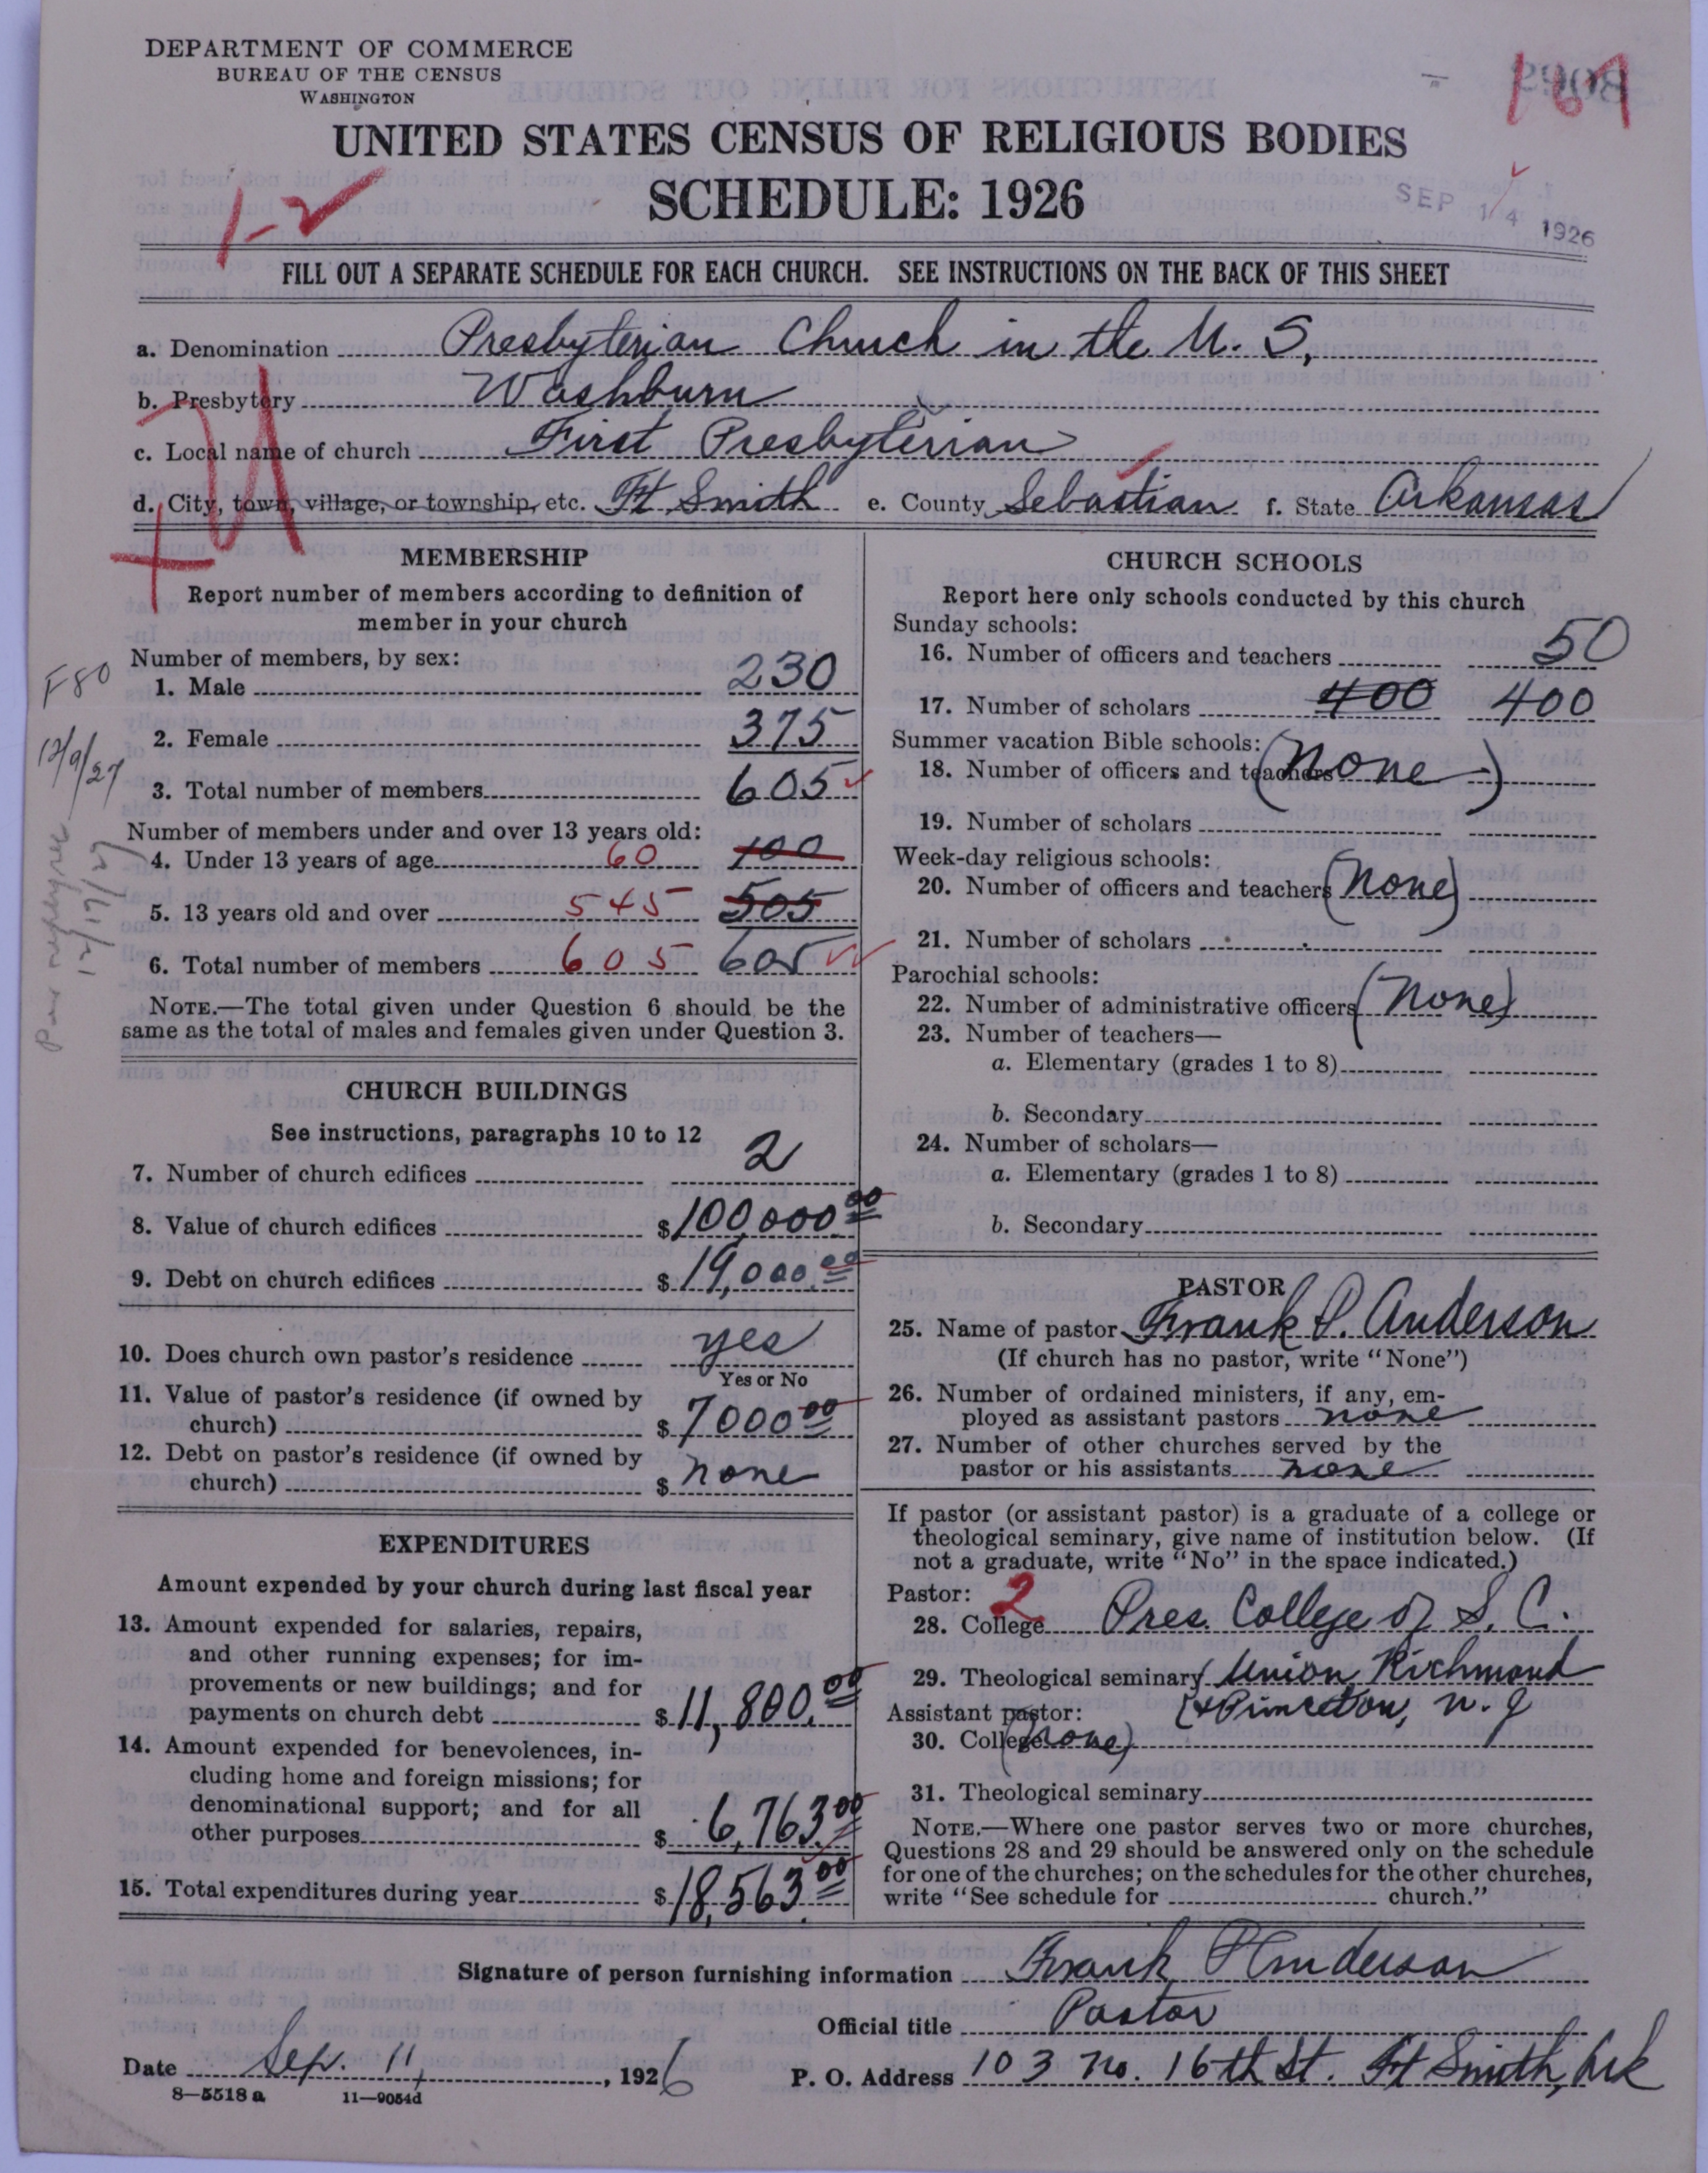 DEPARTMENT OF COMMERCE
BUREAU OF THE CENSUS
WASHINGTON
167
UNITED STATES CENSUS OF RELIGIOUS BODIES
SCHEDULE: 1926
1-2
SEP 14 1926
FILL OUT A SEPARATE SCHEDULE FOR EACH CHURCH. SEE INSTRUCTIONS ON THE BACK OF THIS SHEET
a. Denomination Presbyterian Church in the U. S.
b. Presbytery Washburn
c. Local name of church First Presbyterian
d. City, town, village, or township, etc. Ft Smith e. County Sebastian f. State Arkansas
MEMBERSHIP
Report number of members according to definition of
member in your church
Number of members, by sex:
1. Male 230
2. Female 375
3. Total number of members 605
Number of members under and over 13 years old:
4. Under 13 years of age 60 100
5. 13 years old and over 545 505
6. Total number of members 605 605
NOTE.—The total given under Question 6 should be the
same as the total of males and females given under Question 3.
F80
12/9/27
12/17/27
CHURCH BUILDINGS
See instructions, paragraphs 10 to 12
7. Number of church edifices 2
8. Value of church edifices $100,000.00
9. Debt on church edifices $19,000.00
10. Does church own pastor's residence yes
Yes or No
11. Value of pastor's residence (if owned by
church) $7000.00
12. Debt on pastor's residence (if owned by
church) $ none
EXPENDITURES
Amount expended by your church during last fiscal year
13. Amount expended for salaries, repairs,
and other running expenses; for im-
provements or new buildings; and for
payments on church debt $11,800.00
14. Amount expended for benevolences, in-
cluding home and foreign missions; for
denominational support; and for all
other purposes $6,763.00
15. Total expenditures during year $18,563.00
CHURCH SCHOOLS
Report here only schools conducted by this church
Sunday schools:
16. Number of officers and teachers 50
17. Number of scholars 400 400
Summer vacation Bible schools:
18. Number of officers and teachers (None)
19. Number of scholars
Week-day religious schools:
20. Number of officers and teachers (None)
21. Number of scholars
Parochial schools:
22. Number of administrative officers (None)
23. Number of teachers—
a. Elementary (grades 1 to 8)
b. Secondary
24. Number of scholars—
a. Elementary (grades 1 to 8)
b. Secondary
PASTOR
25. Name of pastor Frank P. Anderson
(If church has no pastor, write "None")
26. Number of ordained ministers, if any, em-
ployed as assistant pastors none
27. Number of other churches served by the
pastor or his assistants none
If pastor (or assistant pastor) is a graduate of a college or
theological seminary, give name of institution below. (If
not a graduate, write "No" in the space indicated.)
Pastor: 2
28. College Pres. College of S. C.
29. Theological seminary Union, Richmond
Assistant pastor: & Princeton, N. J
30. College (none)
31. Theological seminary
NOTE.—Where one pastor serves two or more churches,
Questions 28 and 29 should be answered only on the schedule
for one of the churches; on the schedules for the other churches,
write "See schedule for church."
Signature of person furnishing information Frank P Anderson
Official title Pastor
Date Sep. 11, 1926 P. O. Address 103 No. 16th St. Ft Smith, Ark
8-5518 a 11-9054d